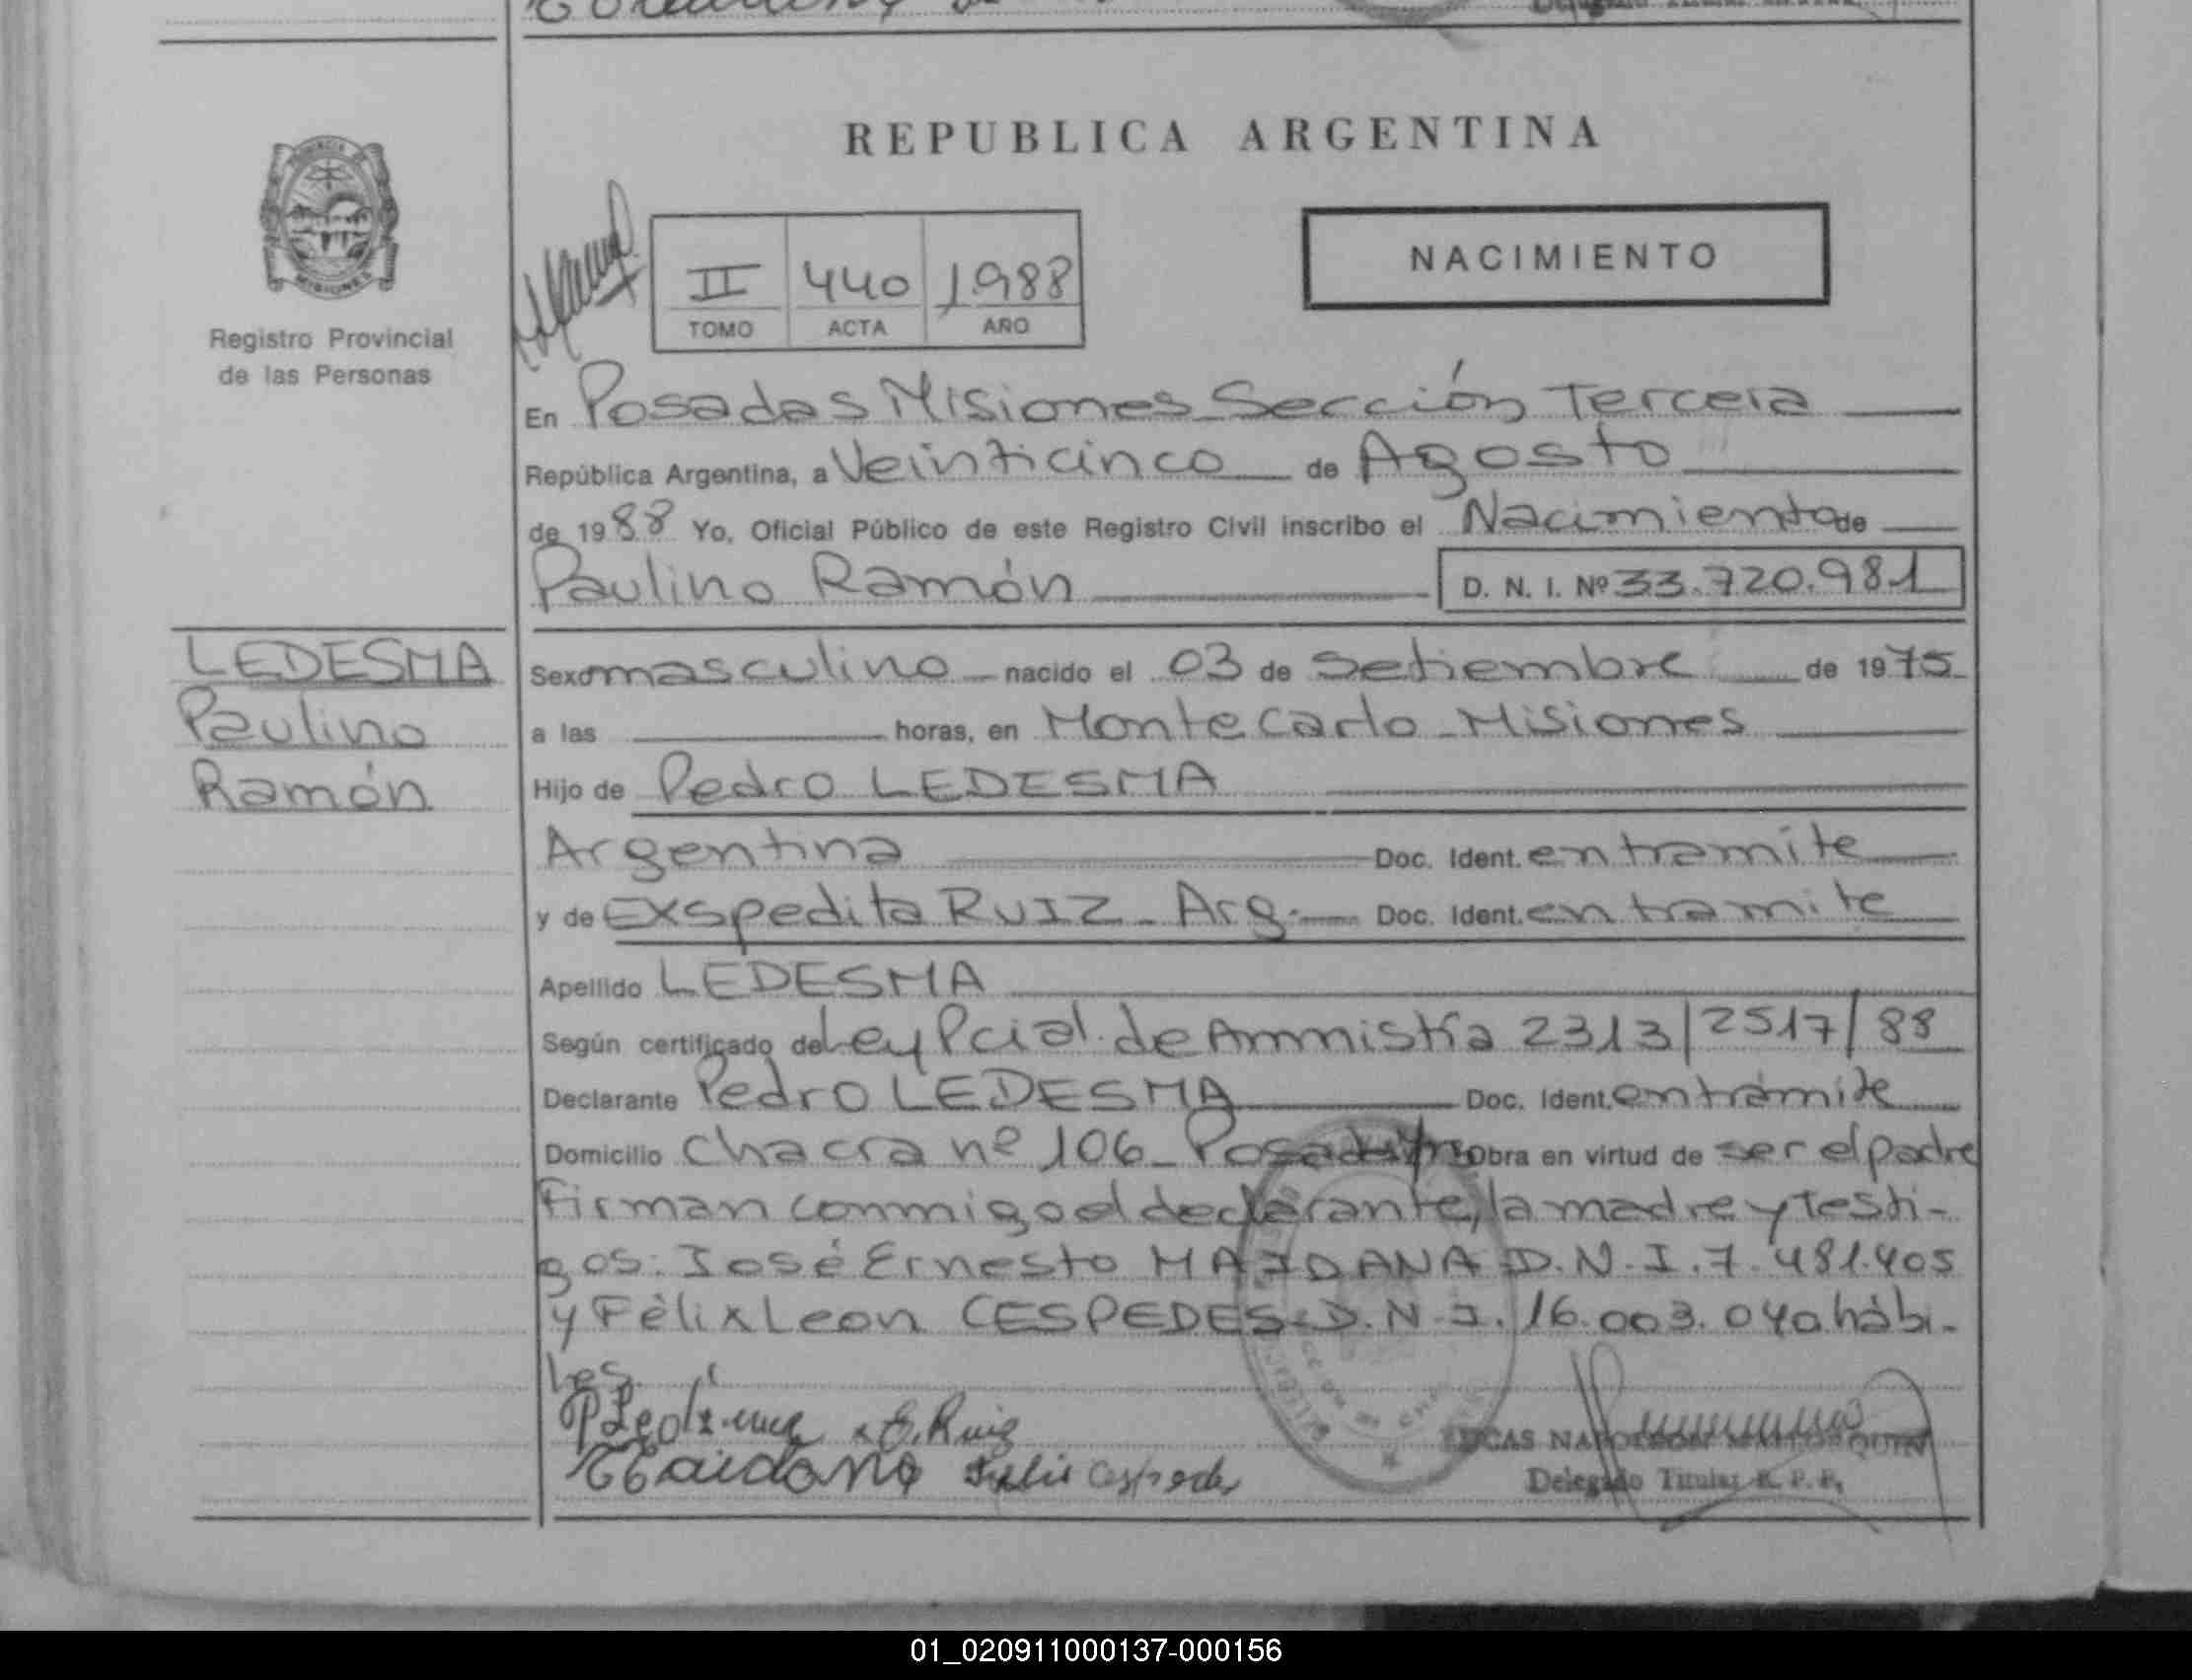 REPUBLICA ARGENTINA
PROVINCIA DE
MISIONES
Registro Provincial
de las Personas
II 440 1988
TOMO ACTA AÑO
NACIMIENTO
En Posadas Misiones Sección Tercera
República Argentina, a Veinticinco de Agosto
de 1988 Yo, Oficial Público de este Registro Civil inscribo el Nacimiento de
Paulino Ramón D. N. I. Nº 33.720.981
LEDESMA
Paulino
Ramón
Sexo masculino nacido el 03 de Setiembre de 1975
a las horas, en Montecarlo - Misiones
Hijo de Pedro LEDESMA
Argentina Doc. Ident. en tramite
y de Exspedita RUIZ - Arg. Doc. Ident. en tramite
Apellido LEDESMA
Según certificado de Ley Pcial. de Amnistía 2313/2517/88
Declarante Pedro LEDESMA Doc. Ident. en trámite
Domicilio Chacra nº 106 - Posadas Obra en virtud de ser el padre
Firman conmigo el declarante, la madre y testi-
gos: José Ernesto MAIDANA D.N.I. 7.481.405
y Félix Leon CESPEDES D.N.I. 16.003.040 hábi-
les.
P Ledesma x E. Ruiz
Maidana Felix Cespedes
LUCAS NAPOLEON QUIN
Delegado Titular R. P. P.
01_020911000137-000156